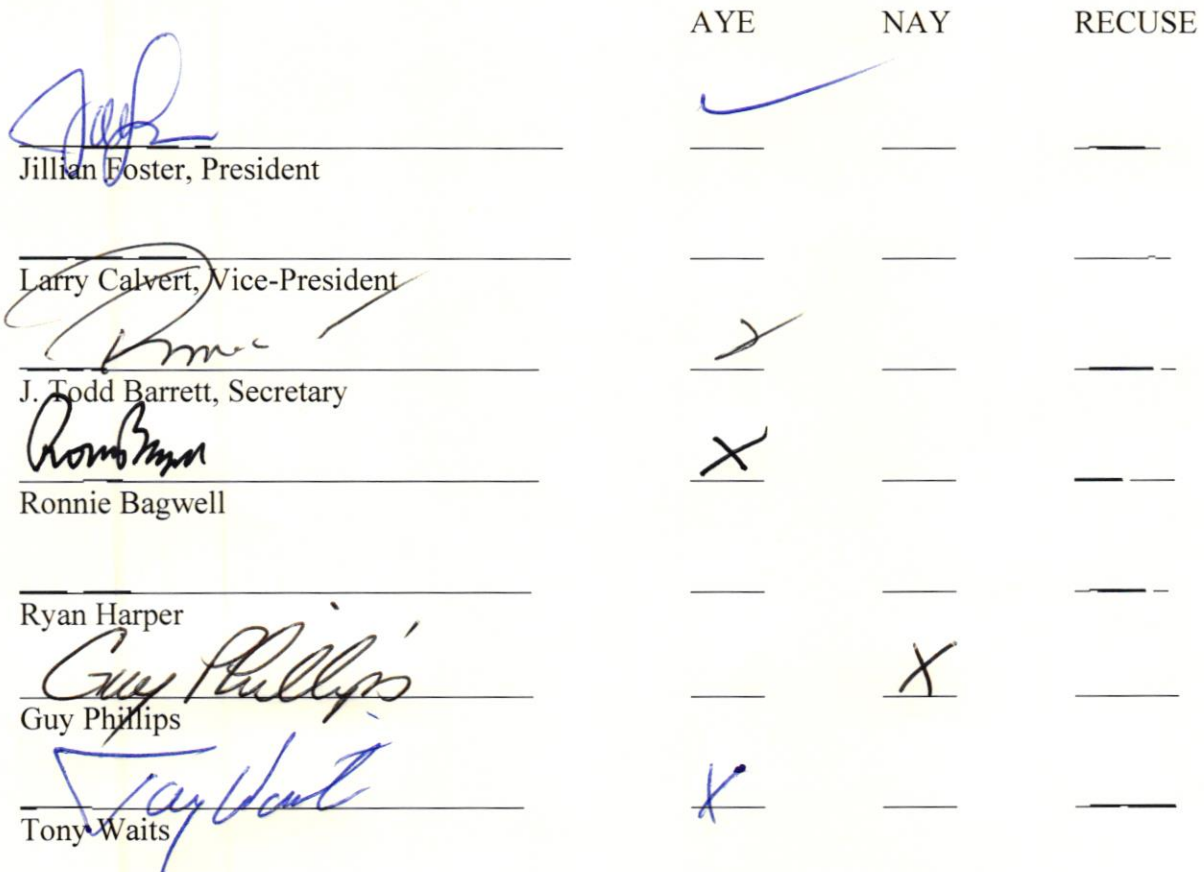 AYE NAY RECUSE
Jillian Foster, President
Larry Calvert, Vice-President
J. Todd Barrett, Secretary
X
Ronnie Bagwell
Ryan Harper
Guy Phillips X
Guy Phillips
Tony Waits X
Tony Waits